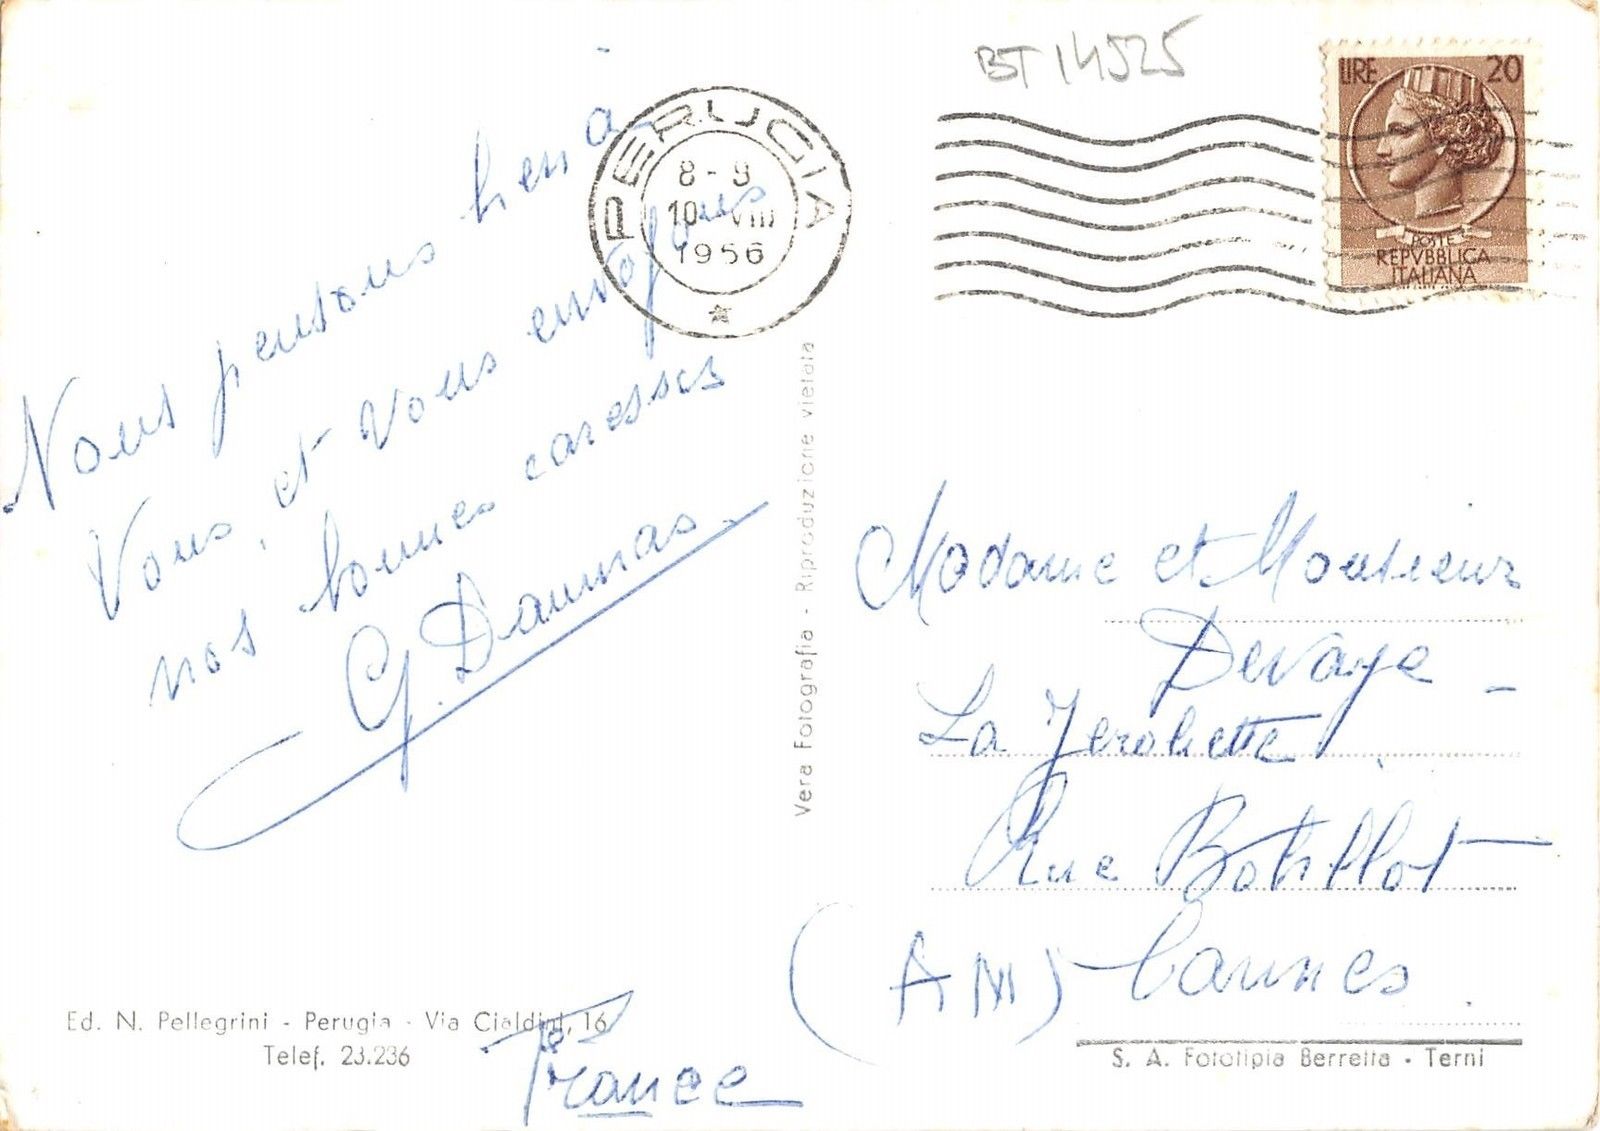 BT 14525
LIRE 20
POSTE
REPVBBLICA
ITALIANA
PERUGIA
8-9
10 VIII
1956
Nous pensons à
Vous, et Vous envoyons
nos bonnes caresses
G. Daumas.
Madame et Monsieur
Devaye -
La
Rue
(AM) Cannes.
France
Vera Fotografia - Riproduzione vietata
Ed. N. Pellegrini - Perugia - Via Cialdini, 16
Telef. 23.236
S. A. Fototipia Berretta - Terni